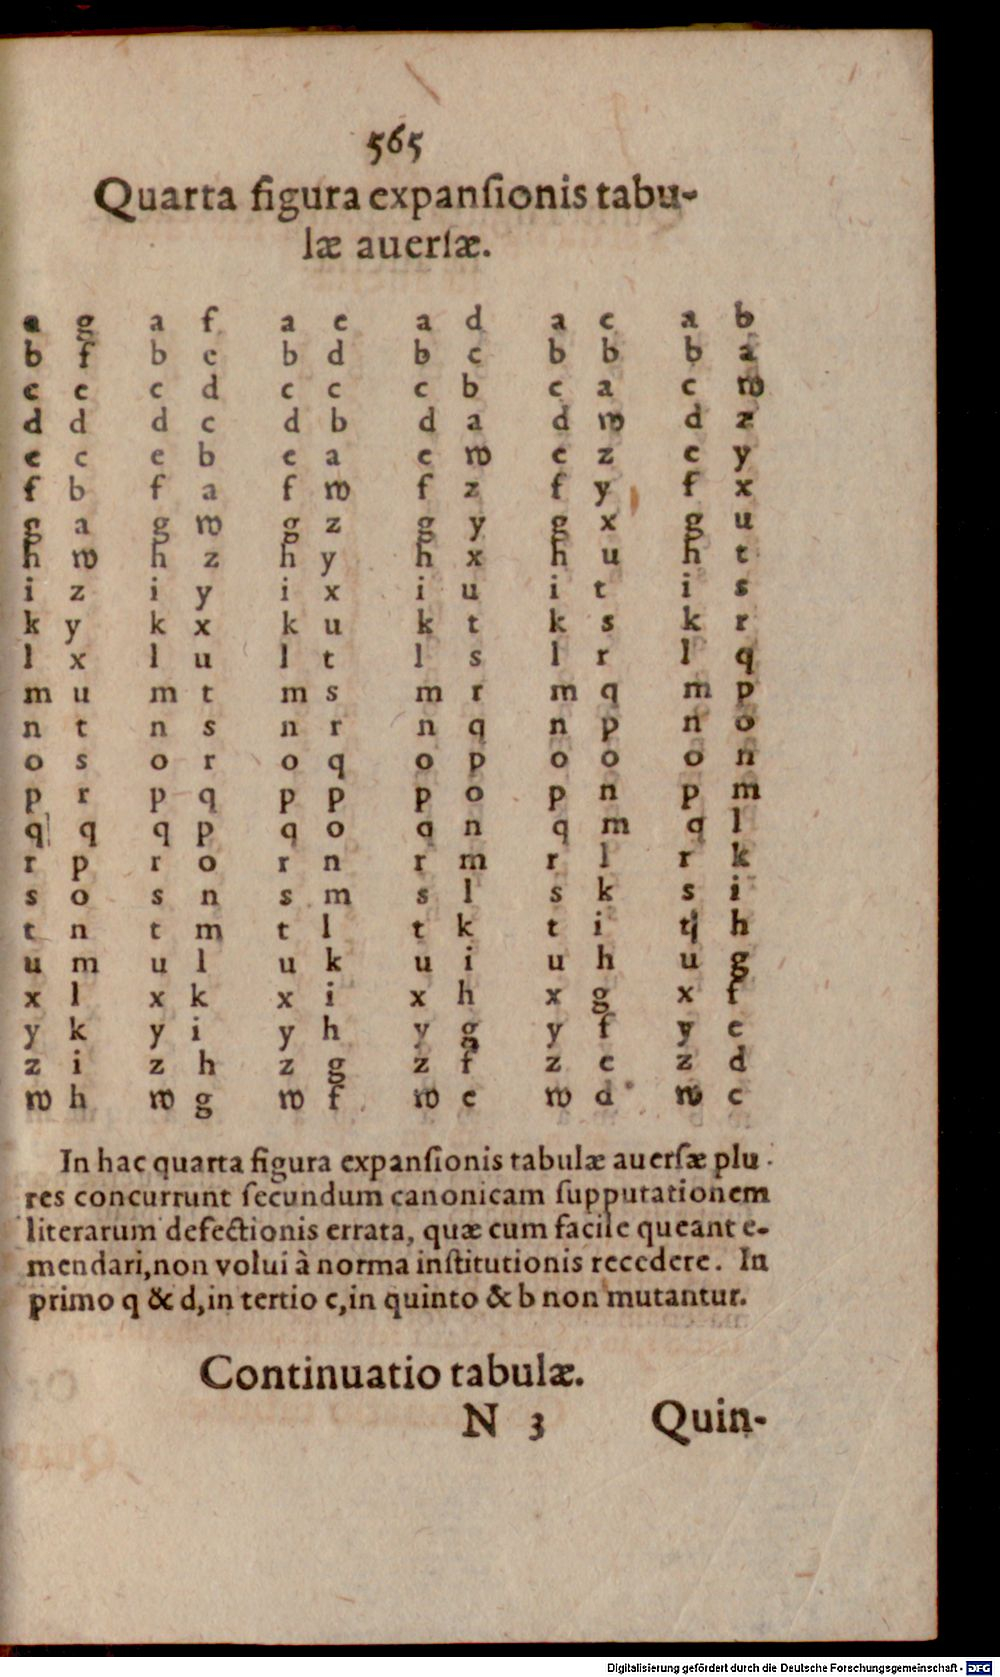 565
Quarta figura expanſionis tabu-
læ auerſæ.
a g a f a e a d a c a b
b f b e b d b c b b b a
c e c d c c c b c a c w
d d d c d b d a d w d z
e c e b e a e w e z e y
f b f a f w f z f y f x
g a g w g z g y g x g u
h w h z h y h x h u h t
i z i y i x i u i t i s
k y k x k u k t k s k r
l x l u l t l s l r l q
m u m t m s m r m q m p
n t n s n r n q n p n o
o s o r o q o p o o o n
p r p q p p p o p n p m
q q q p q o q n q m q l
r p r o r n r m r l r k
s o s n s m s l s k s i
t n t m t l t k t i t h
u m u l u k u i u h u g
x l x k x i x h x g x f
y k y i y h y g y f y e
z i z h z g z f z e z d
w h w g w f w e w d w c
In hac quarta figura expanſionis tabulæ auerſæ plu-
res concurrunt ſecundum canonicam ſupputationem
literarum defectionis errata, quæ cum facile queant e-
mendari, non volui à norma inſtitutionis recedere. In
primo q & d, in tertio c, in quinto & b non mutantur.
Continuatio tabulæ.
N 3 Quin-
Digitalisierung gefördert durch die Deutsche Forschungsgemeinschaft - DFG